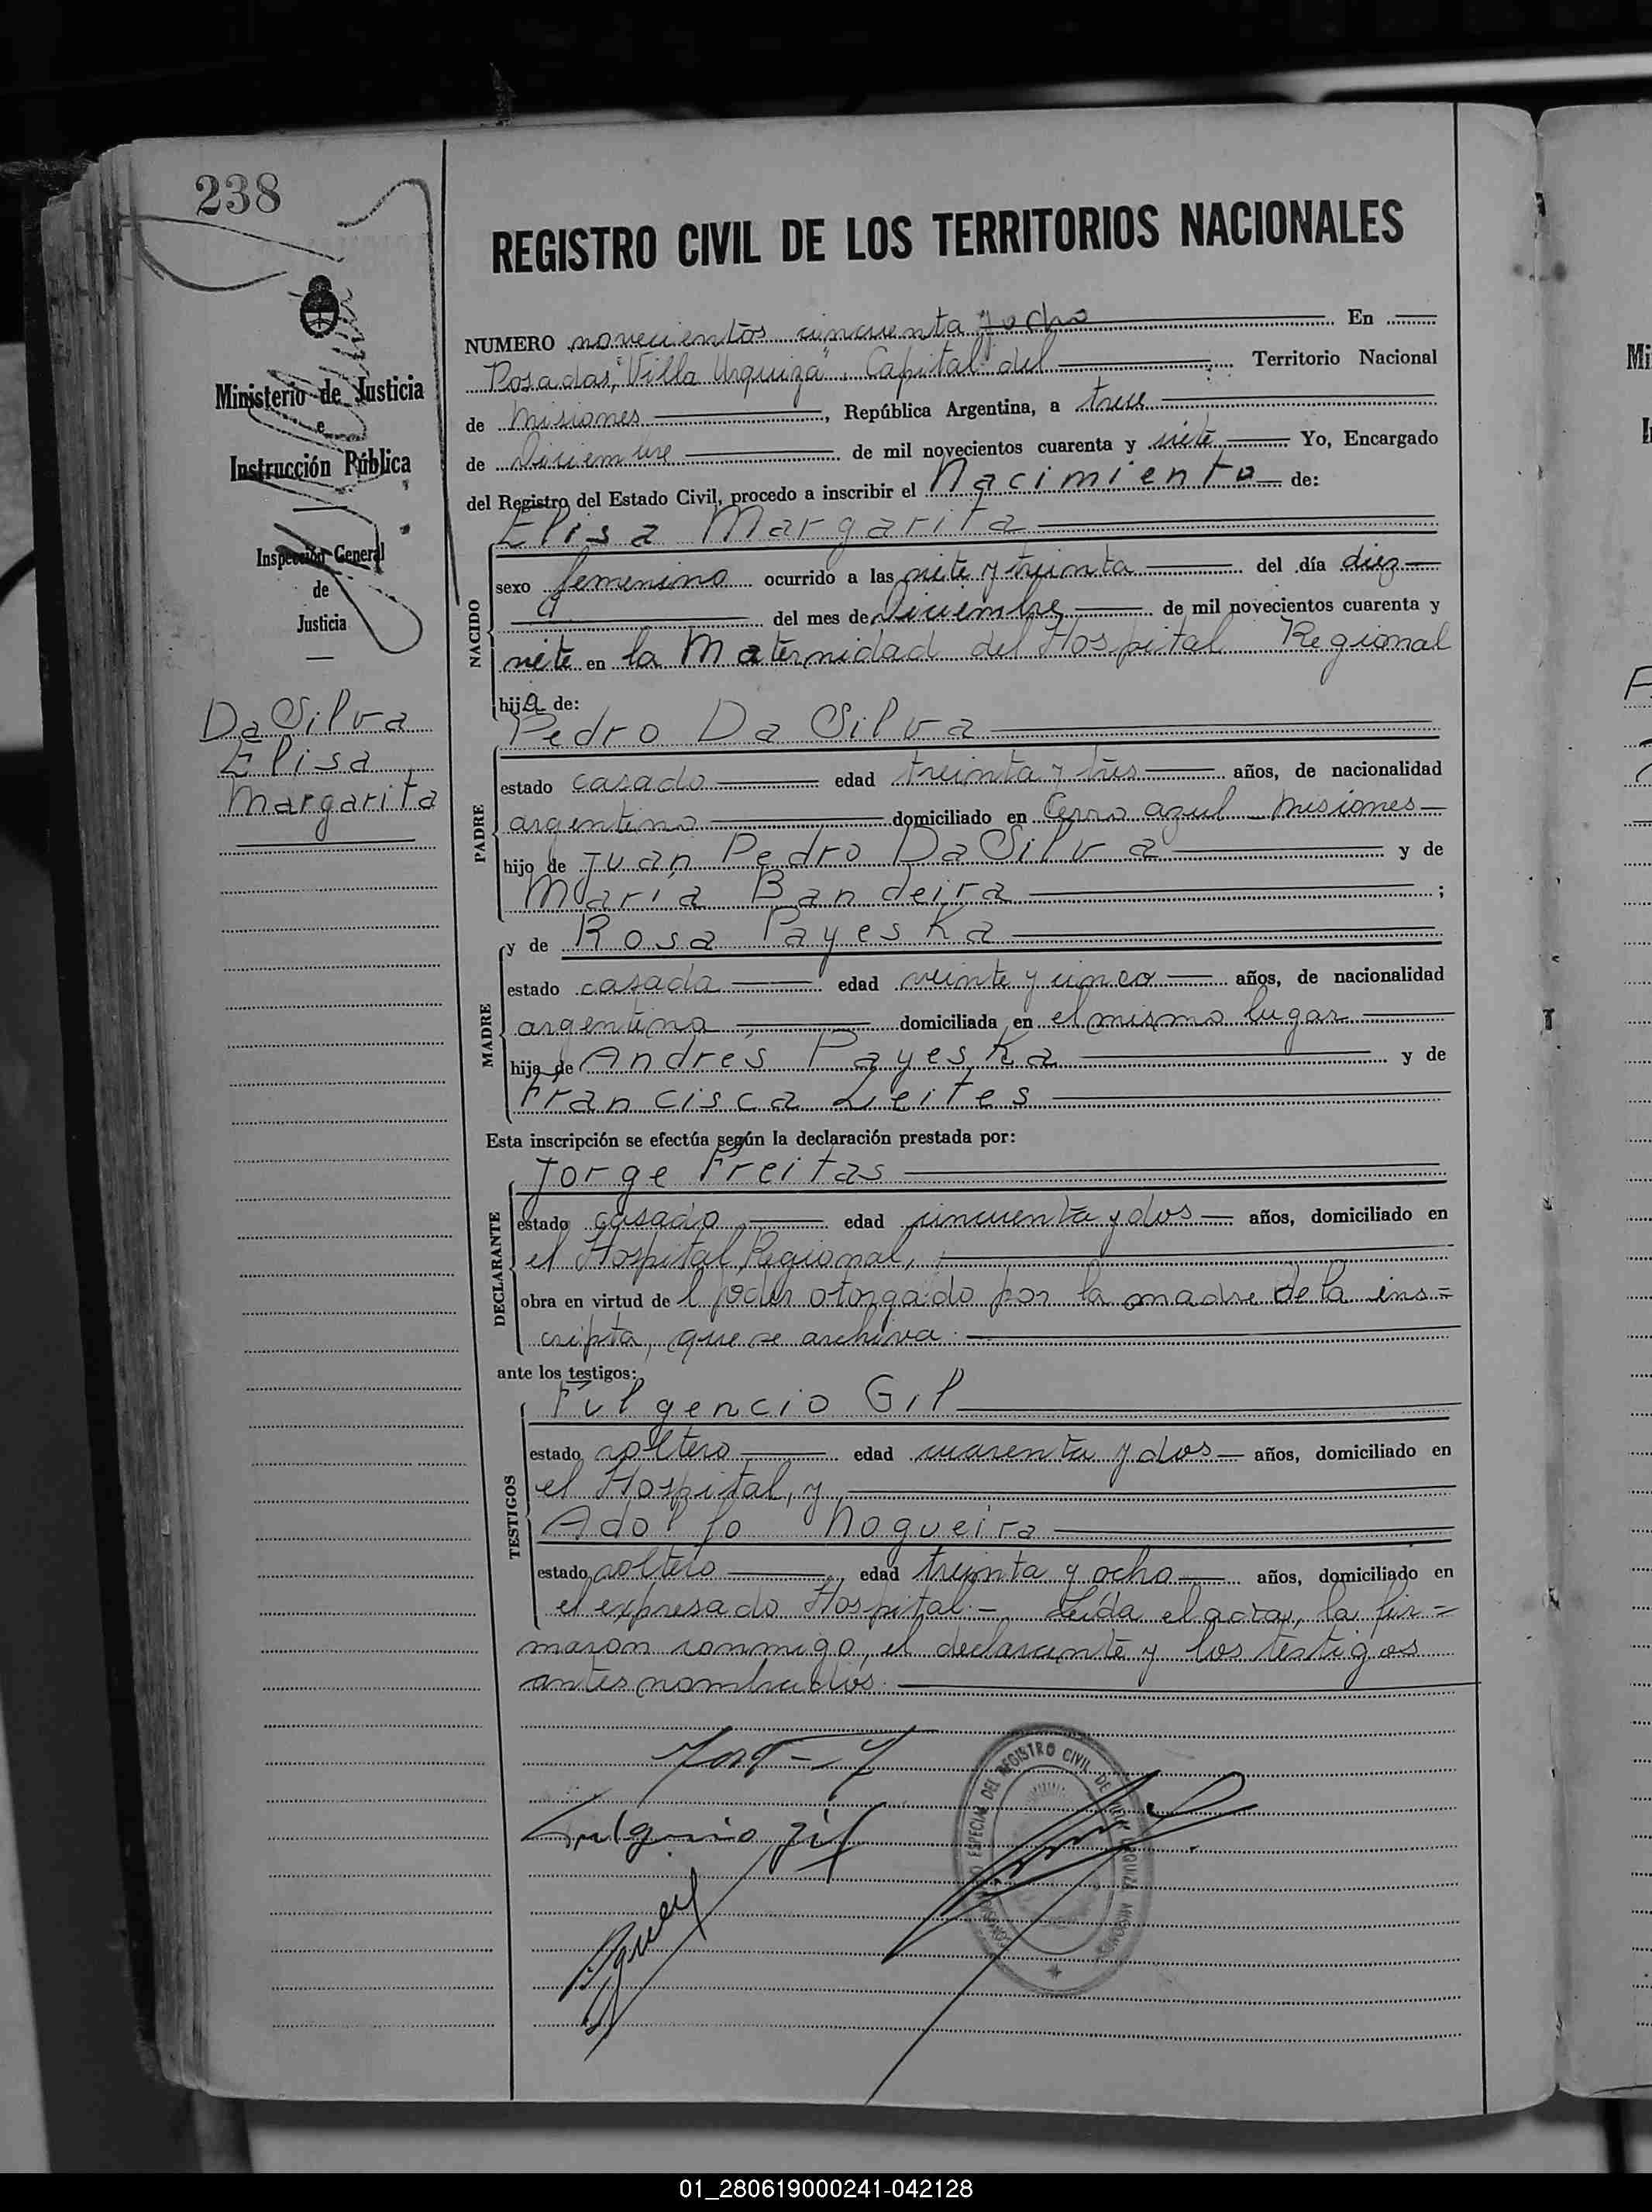 238
REGISTRO CIVIL DE LOS TERRITORIOS NACIONALES
NUMERO novecientos cincuenta y ocho En
Posadas, "Villa Urquiza", Capital del Territorio Nacional
de Misiones, República Argentina, a trece
de Diciembre de mil novecientos cuarenta y siete Yo, Encargado
del Registro del Estado Civil, procedo a inscribir el Nacimiento de:
Ministerio de Justicia
e
Instrucción Pública
Inspección General
de
Justicia
Da Silva
Elisa
Margarita
NACIDO
Elisa Margarita
sexo femenino ocurrido a las siete y treinta del día diez
del mes de Diciembre de mil novecientos cuarenta y
siete en la Maternidad del Hospital Regional
hija de:
PADRE
Pedro Da Silva
estado casado edad treinta y tres años, de nacionalidad
argentino domiciliado en Cerro Azul - Misiones
hijo de Juan Pedro Da Silva y de
María Bandeira ;
MADRE
y de Rosa Payeska
estado casada edad veinte y cinco años, de nacionalidad
argentina domiciliada en el mismo lugar
hija de Andrés Payeska y de
Francisca Leites
Esta inscripción se efectúa según la declaración prestada por:
DECLARANTE
Jorge Freitas
estado casado edad cincuenta y dos años, domiciliado en
el Hospital Regional,
obra en virtud de l poder otorgado por la madre de la ins=
cripta, que se archiva.
ante los testigos:
TESTIGOS
Fulgencio Gil
estado soltero edad cuarenta y dos años, domiciliado en
el Hospital, y
Adolfo Nogueira
estado soltero edad treinta y ocho años, domiciliado en
el expresado Hospital.- Leída el acta, la fir=
maron conmigo, el declarante y los testigos
antes nombrados.
Fulgencio Gil
ESPECIAL DEL REGISTRO CIVIL DE VILLA URQUIZA MISIONES
01_280619000241-042128